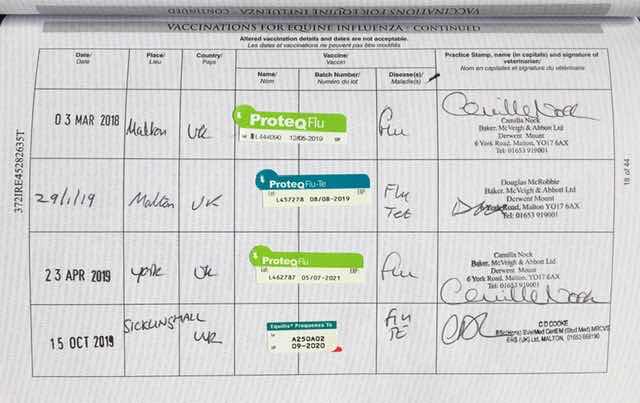 VACCINATIONS FOR EQUINE INFLUENZA - CONTINUED
Altered vaccination details and dates are not acceptable.
Les dates et vaccinations ne peuvent pas être modifiés
Date/
Date
Place/
Lieu
Country/
Pays
Vaccine/
Vaccin
Name/
Nom
Batch Number/
Numéro du lot
Disease(s)/
Maladie(s)
Practice Stamp, name (in capitals) and signature of
veterinarian/
Nom en capitales et signature du vétérinaire
03 MAR 2018
Malton
UK
ProteqFlu
12/05/2019
Flu
Camilla Nock
Camilla Nock
Baker, McVeigh & Abbott Ltd
Derwent Mount
6 York Road, Malton, YO17 6AX
Tel: 01653 919001
29/1/19
Malton
UK
ProteqFlu-Te
L457278 08/08/2019
Flu
Tet
Douglas McRobbie
Baker, McVeigh & Abbott Ltd
Derwent Mount
York Road, Malton YO17 6AX
Tel: 01653 919001
23 APR 2019
York
UK
ProteqFlu
EXP:
L462787 05/07/2021
Flu
Camilla Nock
Baker, McVeigh & Abbott Ltd
Derwent Mount
6 York Road, Malton, YO17 6AX
Tel: 01653 919001
Camilla Nock
15 OCT 2019
SICKLINGHALL
UK
Equilis® Prequenza Te
A250A02
09-2020
Flu
TE
C D COOKE
BSc(Hons) BVetMed CertEM (Stud Med) MRCVS
(UK) Ltd, MALTON,
372IRE45282635T
18 of 44